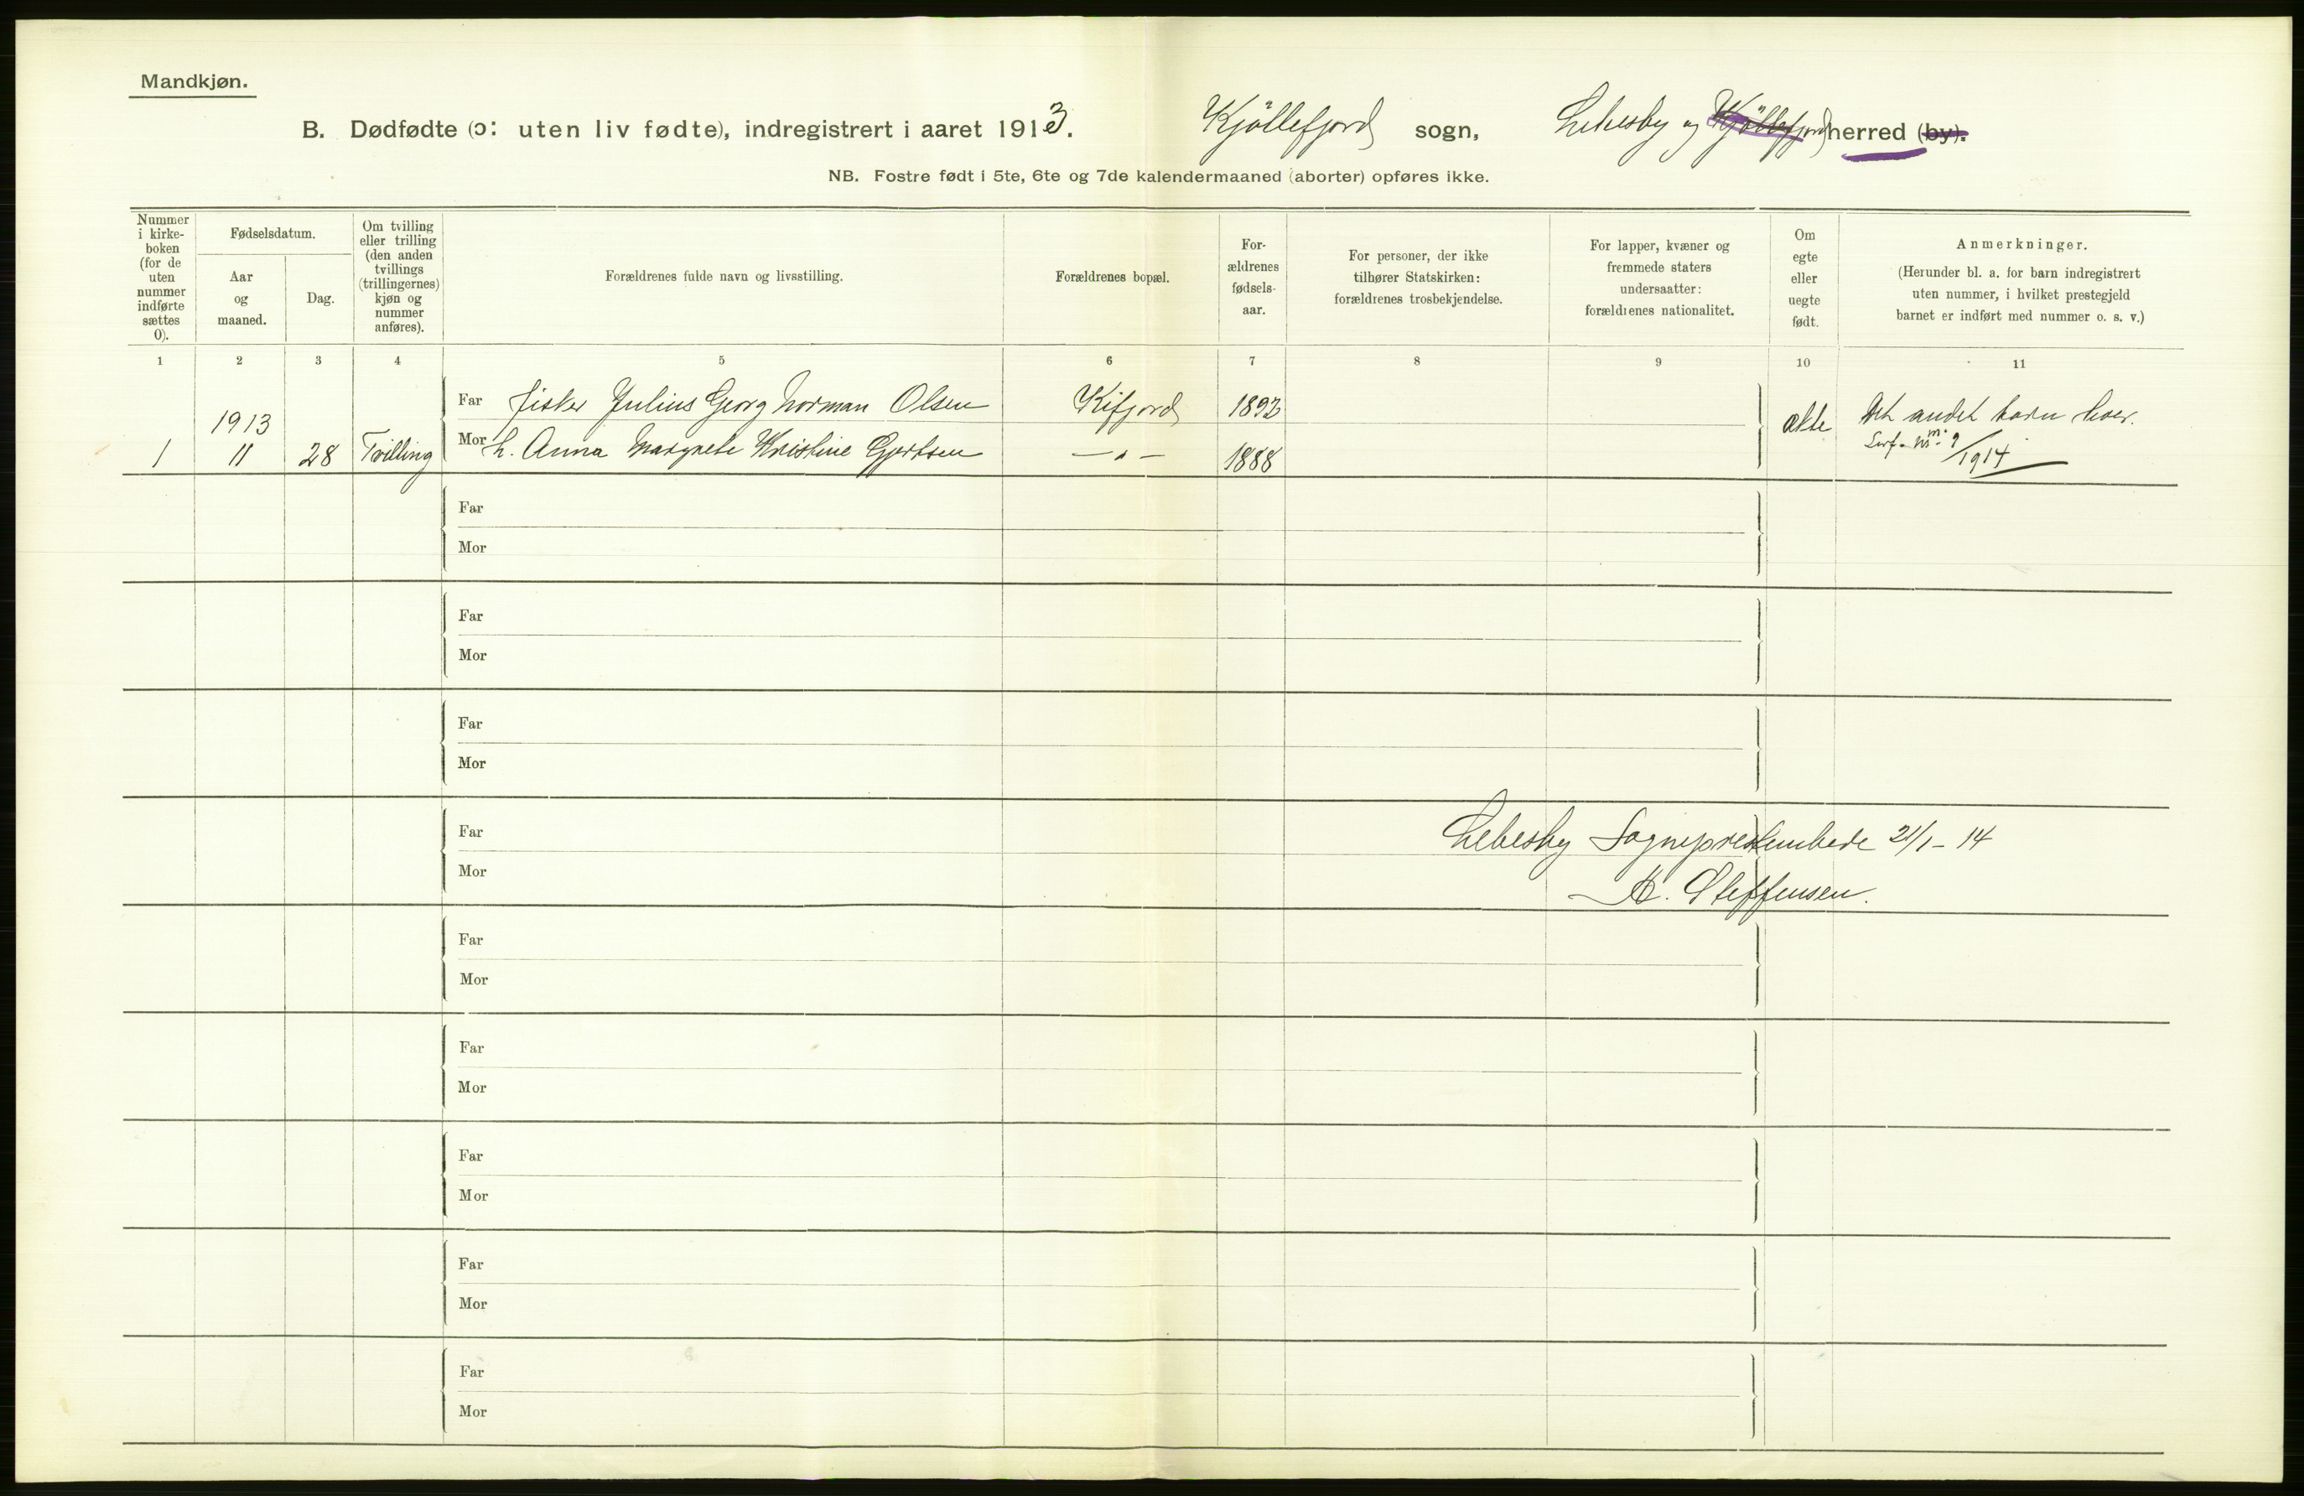 Mandkjøn.
B. Dødfødte (ɔ: uten liv fødte), indregistrert i aaret 1913. Kjöllefjord sogn, Lebesby og Kjöllefjord herred (by).
NB. Fostre født i 5te, 6te og 7de kalendermaaned (aborter) opføres ikke.
Nummer
i kirke-
boken
(for de
uten
nummer
indførte
sættes
0).
Fødselsdatum.
Aar
og
maaned.
Dag.
Om tvilling
eller trilling
(den anden
tvillings
(trillingernes)
kjøn og
nummer
anføres).
Forældrenes fulde navn og livsstilling.
Forældrenes bopæl.
For-
ældrenes
fødsels-
aar.
For personer, der ikke
tilhører Statskirken:
forældrenes trosbekjendelse.
For lapper, kvæner og
fremmede staters
undersaatter:
forældrenes nationalitet.
Om
egte
eller
uegte
født.
Anmerkninger.
(Herunder bl. a. for barn indregistrert
uten nummer, i hvilket prestegjeld
barnet er indført med nummer o. s. v.)
1 2 3 4 5 6 7 8 9 10 11
Far fisker Julius Georg Norman Olsen Kifjord 1892
1913
Mor h. Anna Margrete Kristine Gjertsen — " — 1888
1 11 28 Tvilling
ekte
Det andet barn
9/1914
Far
Mor
Far
Mor
Far
Mor
Far
Lebesby Sogneprestembede 21/1 - 14
Mor
Steffensen.
Far
Mor
Far
Mor
Far
Mor
Far
Mor
Far
Mor